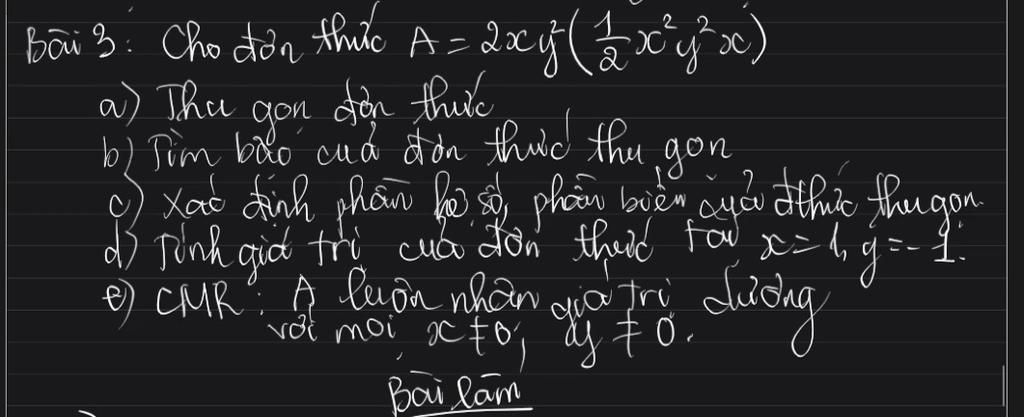 Bài 3: Cho đơn thức A = 2xy²(1/2 x²y²x)
a) Thu gọn đơn thức
b) Tìm bậc của đơn thức thu gọn
c) Xác định phần hệ số, phần biến của đthức thu gọn.
d) Tính giá trị của đơn thức tại x = 1, y = -1.
e) CMR: A luôn nhận giá trị dương
với mọi x ≠ 0; y ≠ 0.
Bài làm